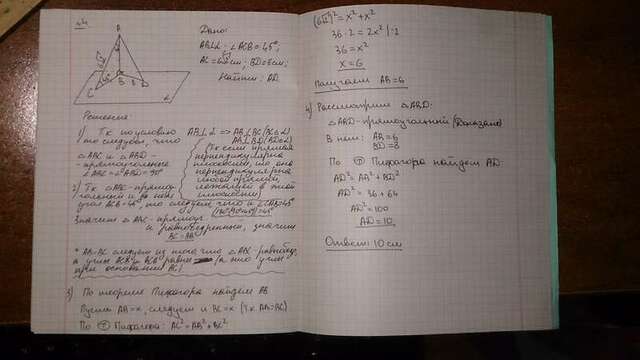 Дано:
AB⊥α; ∠ACB=45°;
AC=6√2см; BD=8см;
Найти: AD.
A
6√2
45°
C
B
8
D
α
Решение:
1) Т.к по условию AB⊥α => AB⊥BC (BC∈α)
AB⊥BD (BD∈α)
то следует, что
△ABC и △ABD -
- прямоугольные
∠ABC=∠ABD=90°
(Т.к если прямая
перпендикулярна
плоскости, то она
перпендикулярна
любой прямой,
лежащей в этой
плоскости)
2) Т.к △ABC-прямоу-
гольный и в нём
угол ACB=45°, то следует что и ∠CAB=45°
(180°-90°-45°)=45°
Значит △ABC-прямоуг.
и равнобедренный, значит
BC=AB*
* AB=BC следует из того что △ABC-равнобед.
а углы BCA и BAC равны (а это углы
при основании AC)
3) По теореме Пифагора найдем AB
Пусть AB=x, следует и BC=x (т.к AB=BC)
По Т Пифагора: AC²=AB²+BC²
(6√2)²=x²+x²
36·2=2x² |:2
36=x²
x=6
Получаем AB=6
4) Рассмотрим △ABD:
△ABD-прямоугольный (Доказано)
В нем: AB=6
BD=8
По Т Пифагора найдем AD:
AD²=AB²+BD²
AD²=36+64
AD²=100
AD=10
Ответ: 10 см